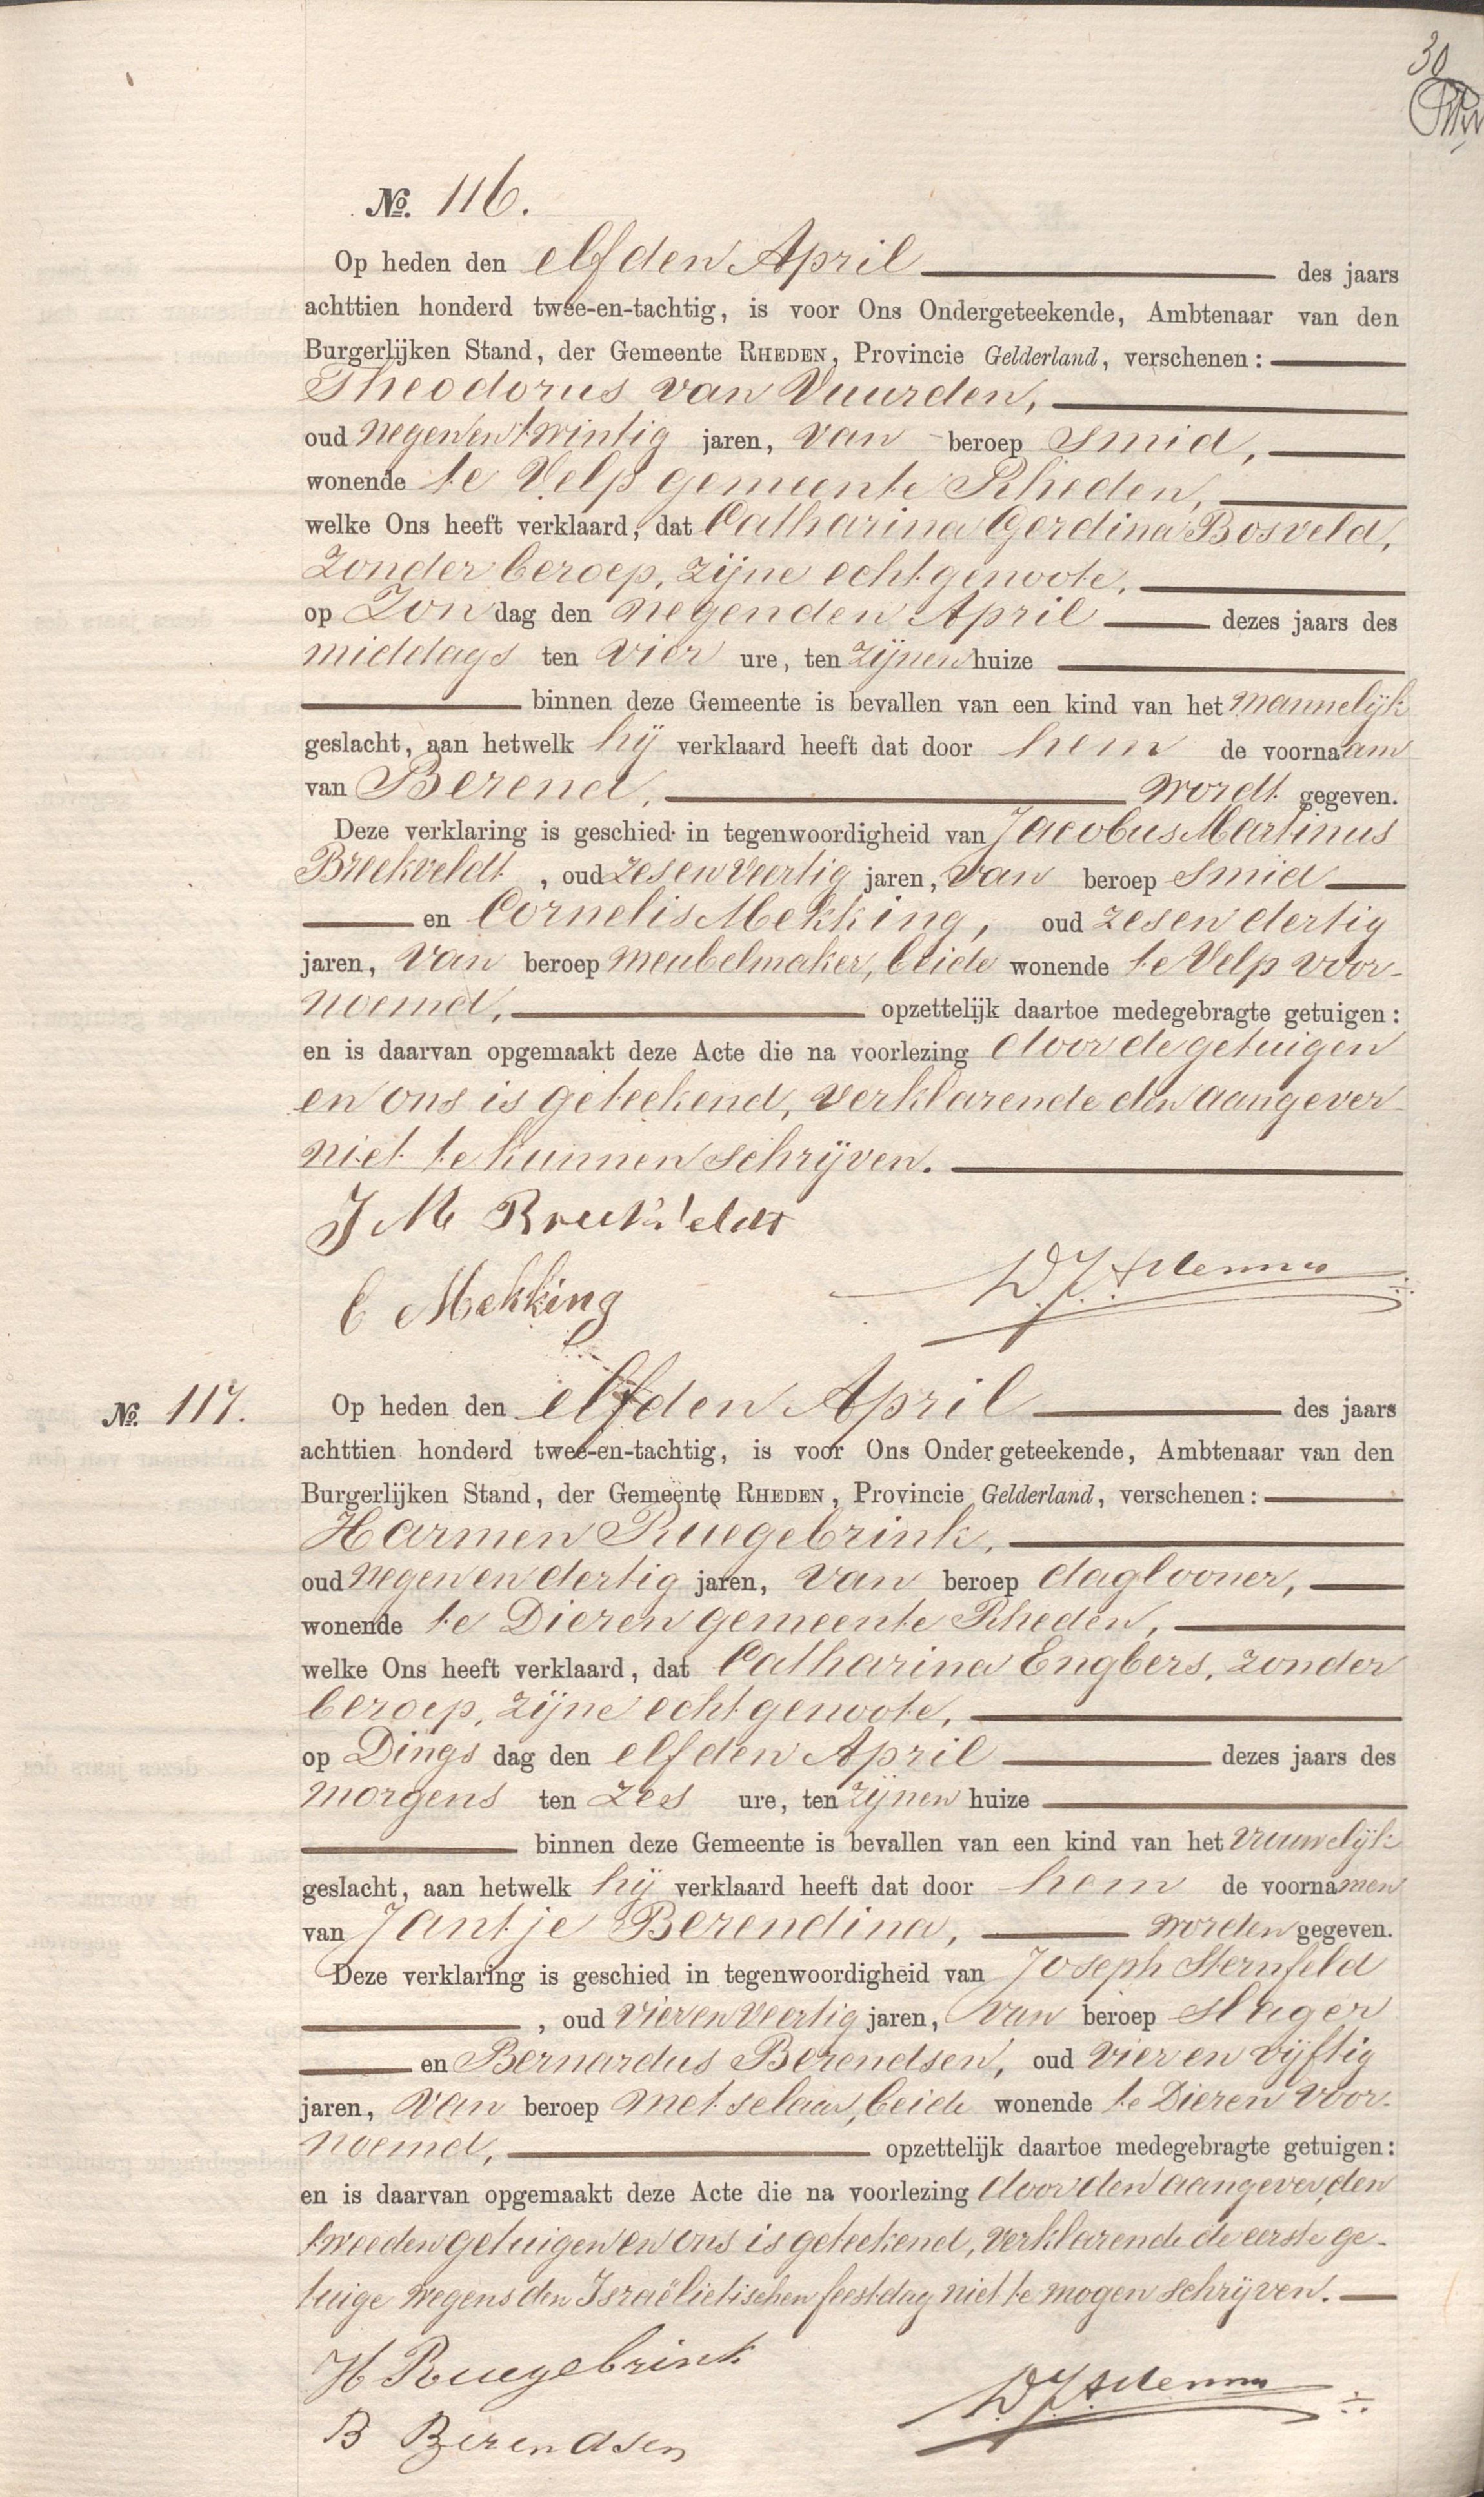 30
No. 116.
Op heden den elfden April des jaars
achttien honderd twee-en-tachtig, is voor Ons Ondergeteekende, Ambtenaar van den
Burgerlijken Stand, der Gemeente RHEDEN, Provincie Gelderland, verschenen:
Theodorus van Vuurden,
oud negenentwintig jaren, van beroep smid,
wonende te Velp gemeente Rheden,
welke Ons heeft verklaard, dat Catharina Gerdina Bosveld,
zonder beroep, zijne echtgenoote,
op Zondag den negenden April dezes jaars des
middags ten vier ure, ten zijnen huize
binnen deze Gemeente is bevallen van een kind van het mannelijk
geslacht, aan hetwelk hij verklaard heeft dat door hem de voornaam
van Berend, wordt gegeven.
Deze verklaring is geschied in tegenwoordigheid van Jacobus Martinus
Breekveldt, oud zesenveertig jaren, van beroep smid
en Cornelis Mekking, oud zesendertig
jaren, van beroep meubelmaker, beide wonende te Velp voor-
noemd, opzettelijk daartoe medegebragte getuigen:
en is daarvan opgemaakt deze Acte die na voorlezing door de getuigen
en ons is geteekend, verklarende den aangever
niet te kunnen schrijven.
J M Breekveldt
C Mekking
No. 117.
Op heden den elfden April des jaars
achttien honderd twee-en-tachtig, is voor Ons Ondergeteekende, Ambtenaar van den
Burgerlijken Stand, der Gemeente RHEDEN, Provincie Gelderland, verschenen:
Harmen Ruegebrink,
oud negenendertig jaren, van beroep daglooner,
wonende te Dieren gemeente Rheden,
welke Ons heeft verklaard, dat Catharina Engbers, zonder
beroep, zijne echtgenoote,
op Dingsdag den elfden April dezes jaars des
morgens ten zes ure, ten zijnen huize
binnen deze Gemeente is bevallen van een kind van het vrouwelijk
geslacht, aan hetwelk hij verklaard heeft dat door hem de voornamen
van Jantje Berendina, worden gegeven.
Deze verklaring is geschied in tegenwoordigheid van Joseph Sternfeld
, oud vierenveertig jaren, van beroep slager
en Bernardus Berendsen, oud vierenvijftig
jaren, van beroep metselaar, beide wonende te Dieren voor-
noemd, opzettelijk daartoe medegebragte getuigen:
en is daarvan opgemaakt deze Acte die na voorlezing door den aangever, den
tweeden getuigen en ons is geteekend, verklarende de eerste ge-
tuige wegens den Israëlietischen feestdag niet te mogen schrijven.
H Ruegebrink
B Berendsen